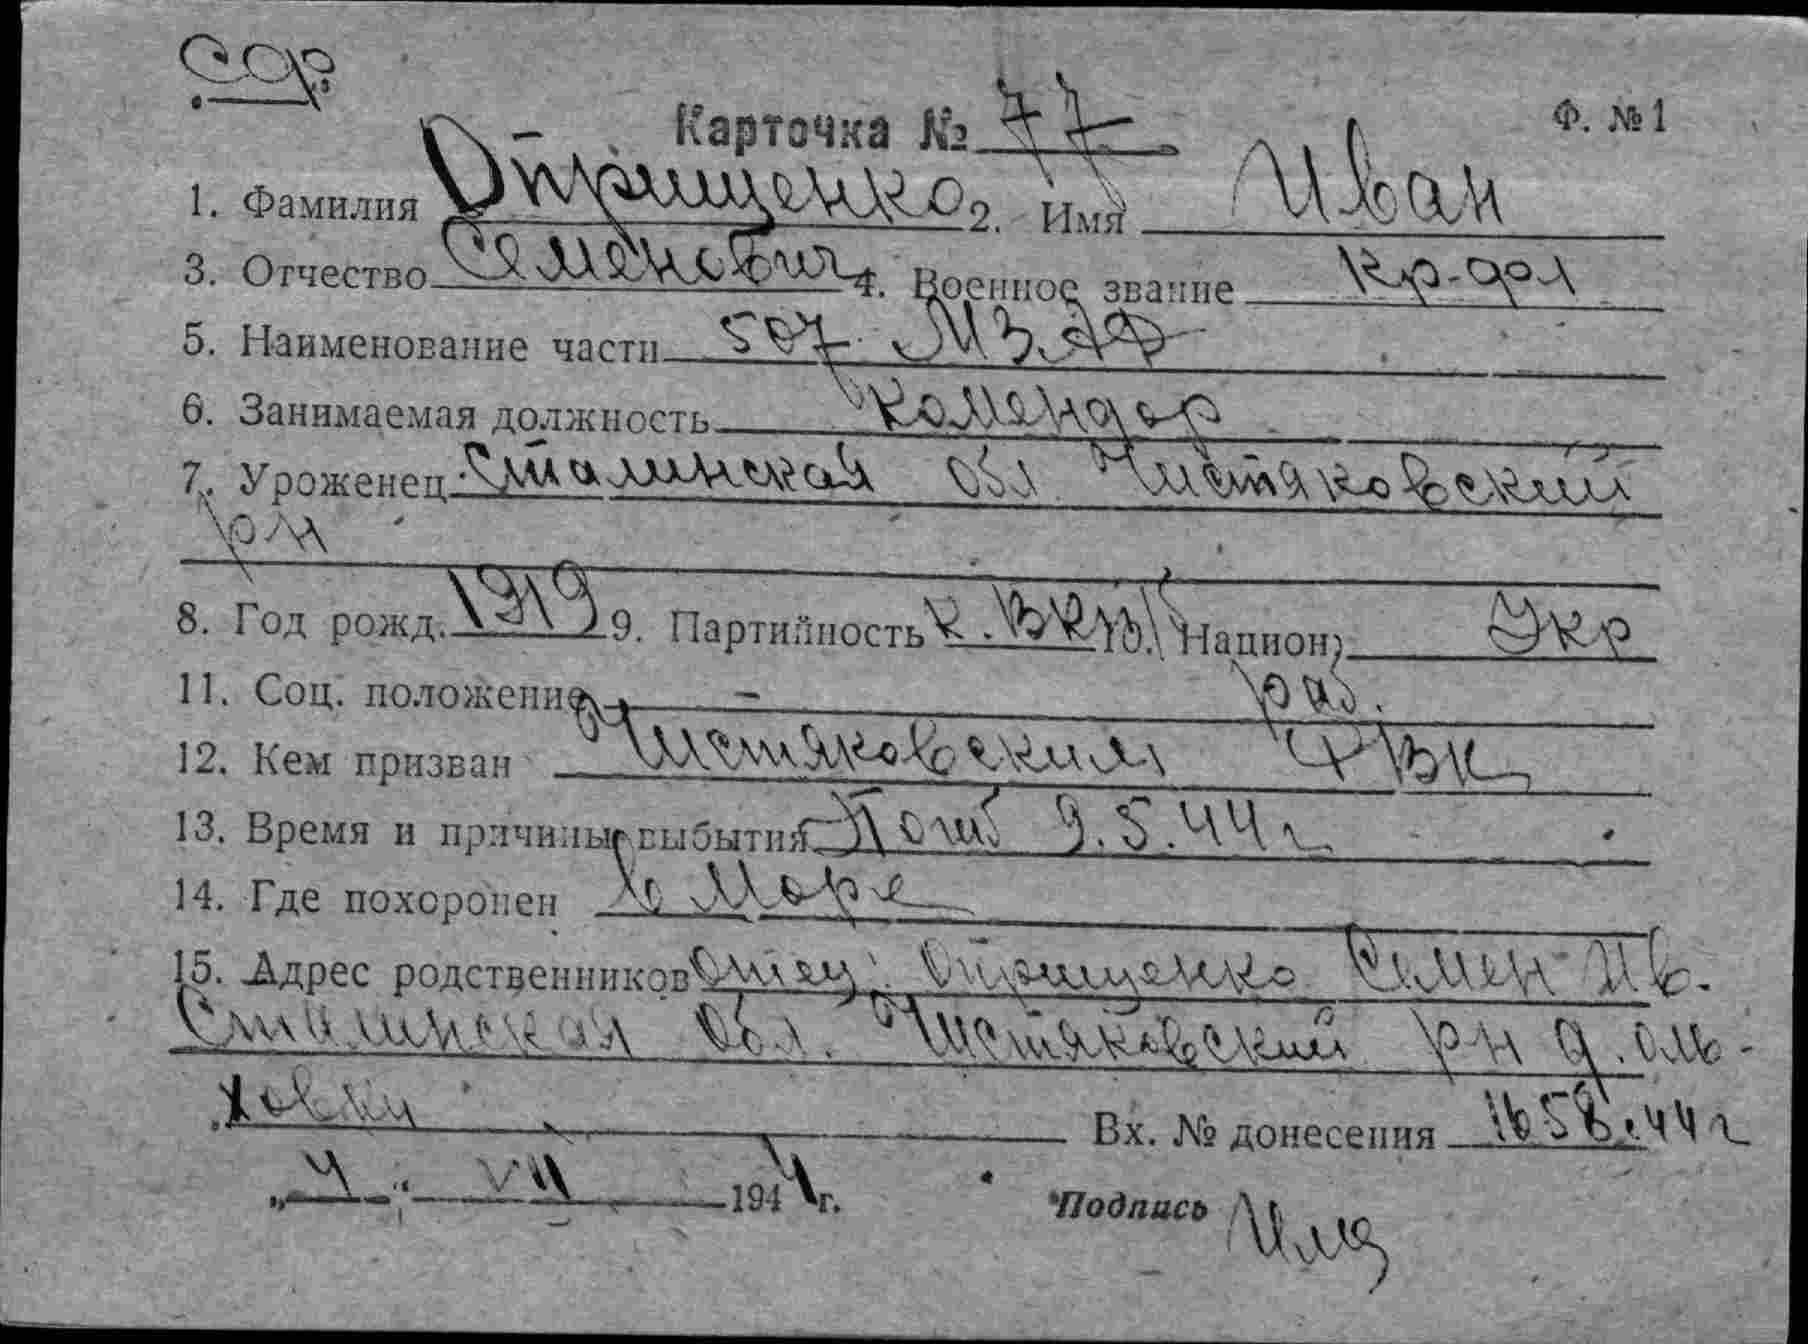 Сор
Карточка № 77 Ф. № 1
1. Фамилия Отрищенко 2. Имя Иван
3. Отчество Семенович 4. Военное звание кр-фл
5. Наименование части 507 МЗАД
6. Занимаемая должность комендор
7. Уроженец Сталинская обл Чистяковский
рн
8. Год рожд. 1919 9. Партийность к. ВКПб 10. Национ. Укр
11. Соц. положение раб.
12. Кем призван Чистяковским РВК
13. Время и причины выбытия Погиб 9.5.44 г
14. Где похоронен В Море
15. Адрес родственников отец: Отрищенко Семен Ив.
Сталинская обл. Чистяковский рн д. Оль-
ховки
Вх. № донесения 1658.44 г
„4“ VII 1944 г. Подпись